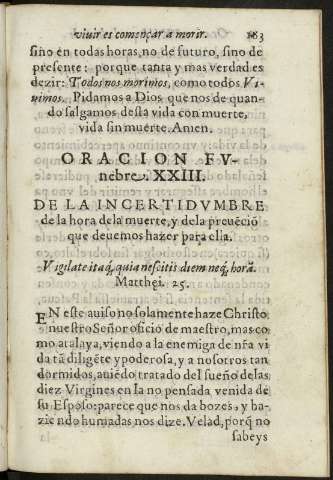 viuir es començar a morir. 183
sino en todas horas, no de futuro, sino de
presente: porque tanta y mas verdad es
dezir: Todos nos morimos, como todos Vi-
uimos. Pidamos a Dios que nos de quan-
do salgamos desta vida con muerte,
vida sin muerte. Amen.
ORACION FV-
nebre. XXIII.
DE LA INCERTIDVMBRE
de la hora dela muerte, y dela preuẽciõ
que deuemos hazer para ella.
Vigilate itaq̃, quia nescitis diem neq̃, horã.
Matthęi. 25.
EN este auiso no solamente haze Christo
nuestro Señor oficio de maestro, mas co-
mo atalaya, viendo a la enemiga de nr̃a vi
da tã diligẽte y poderosa, y a nosotros tan
dormidos, auiẽdo tratado del sueño de las
diez Virgines en la no pensada venida de
su Esposo: parece que nos da bozes, y ha-
ziẽndo humadas nos dize. Velad, porq̃ no
sabeys